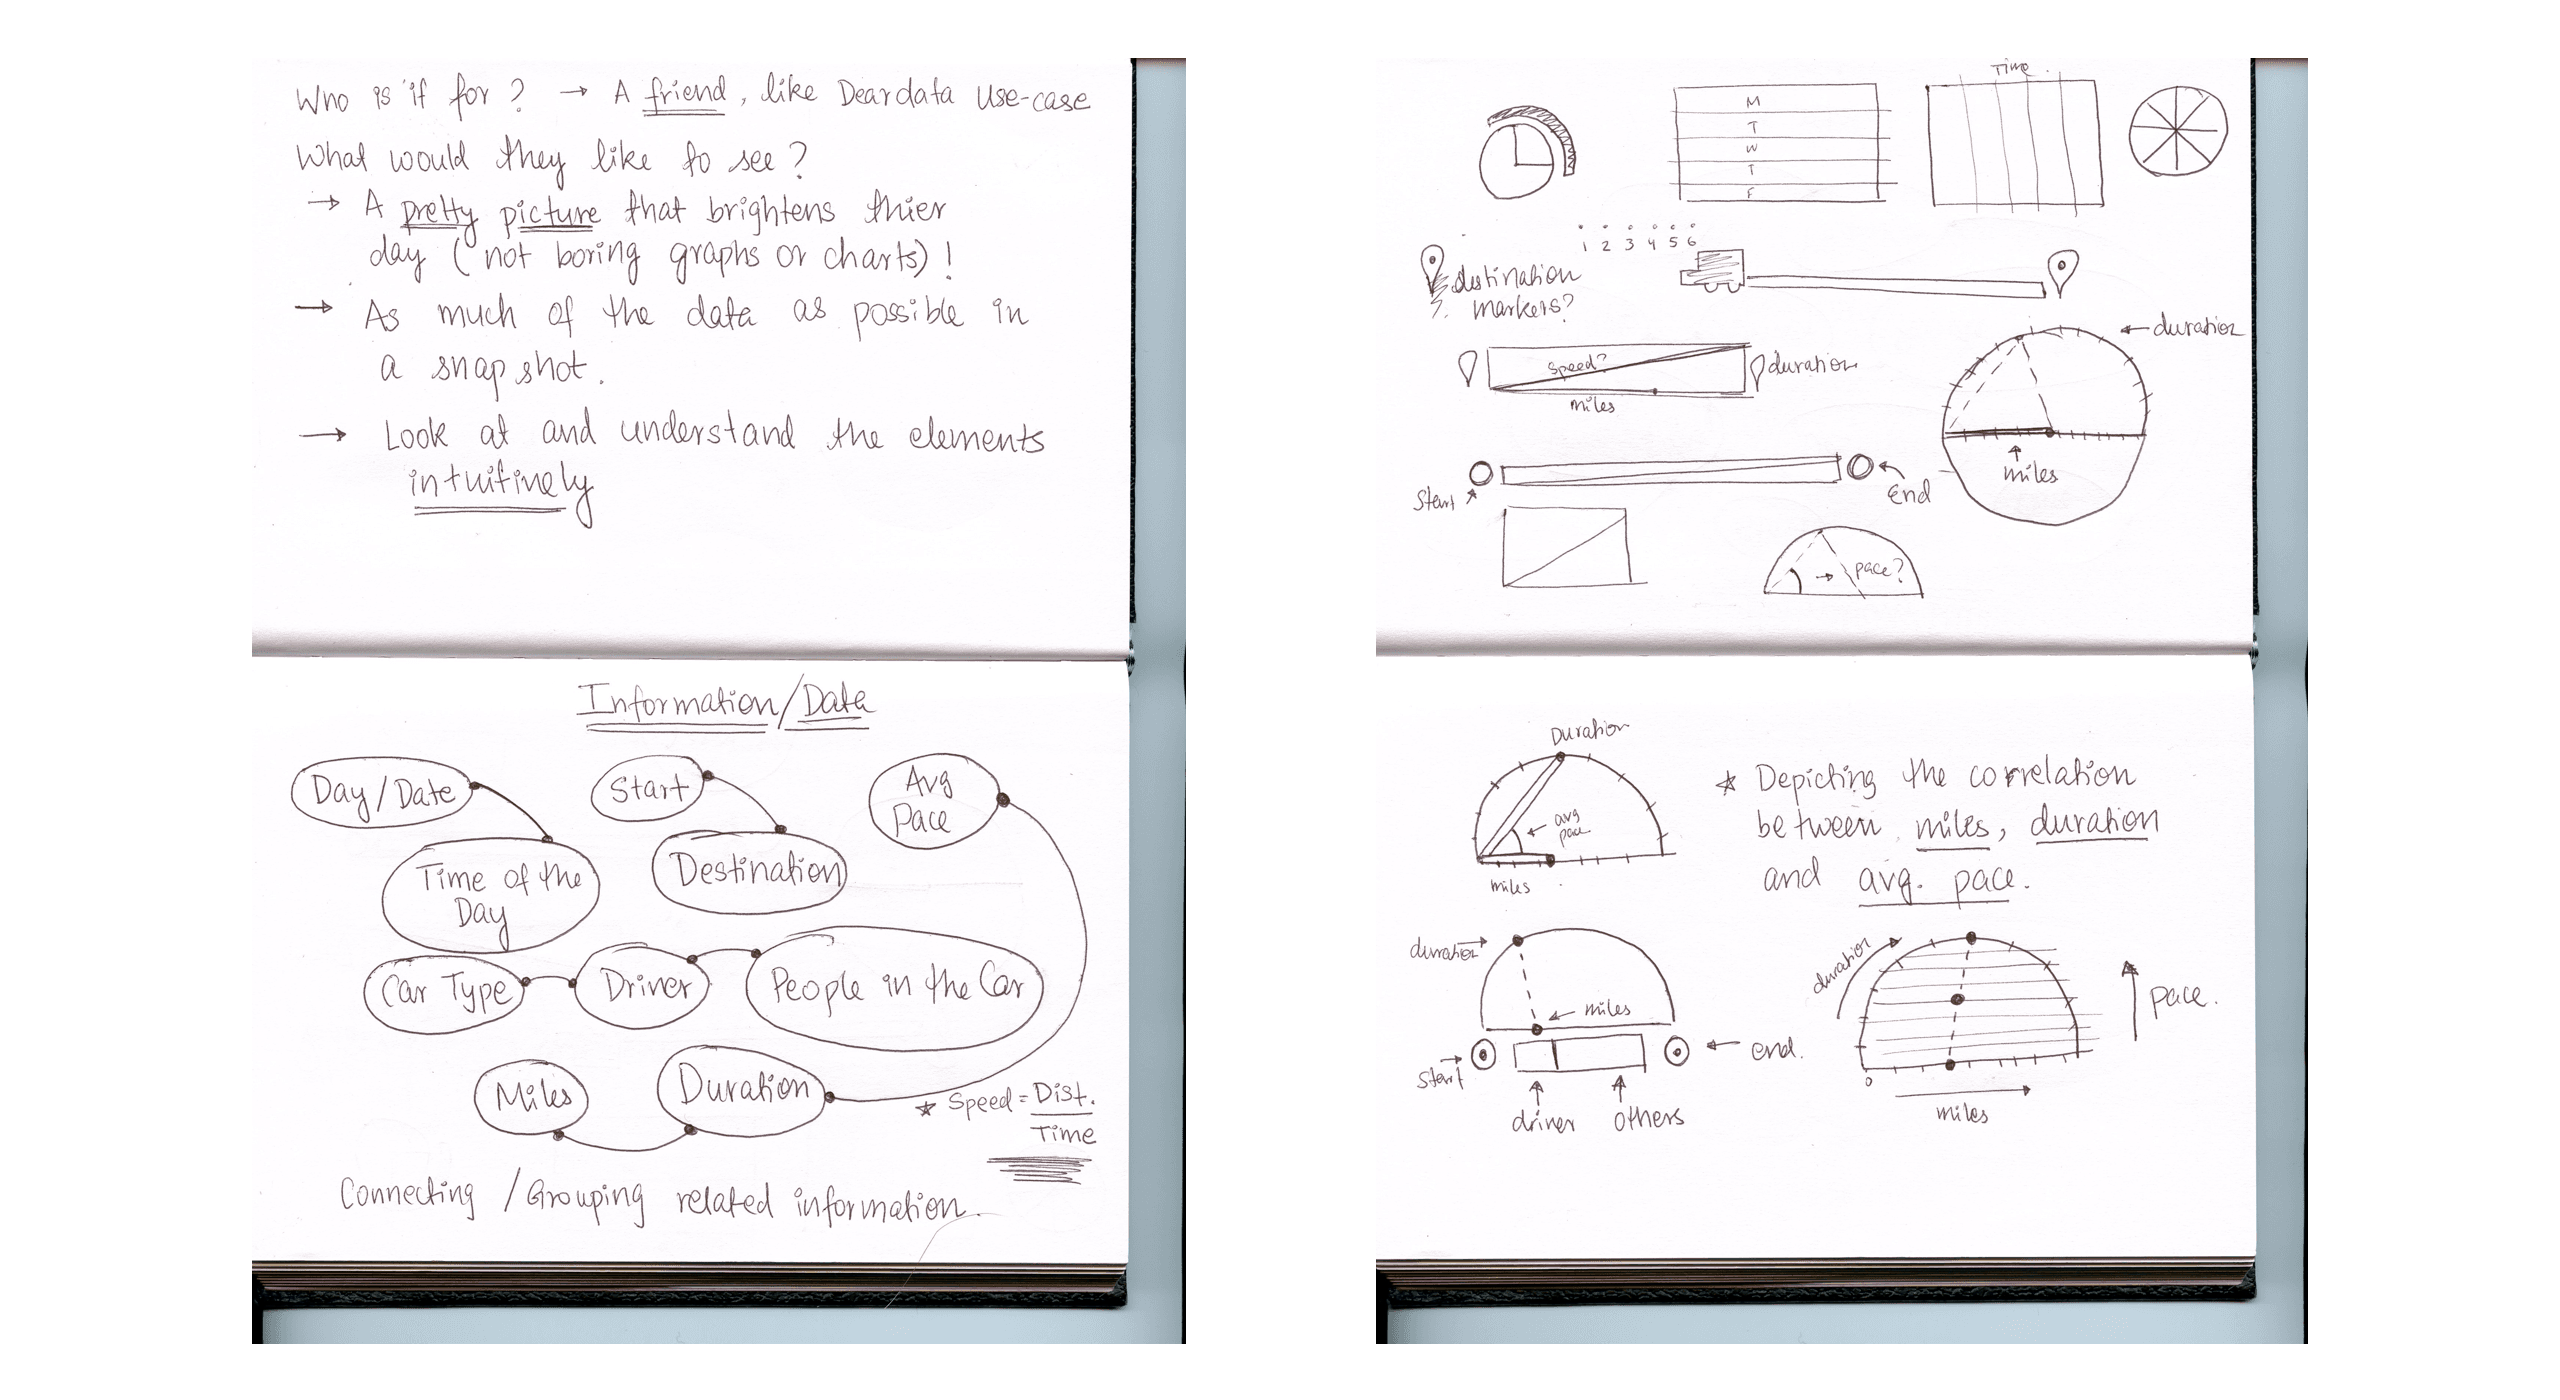 Who is it for? → A friend, like Deardata use-case
What would they like to see?
→ A pretty picture that brightens thier
day (not boring graphs or charts)!
→ As much of the data as possible in
a snapshot.
→ Look at and understand the elements
intuitively
Information/Data
Day/Date
Start
Avg
Pace
Time of the
Day
Destination
Car Type
Driver
People in the Car
Miles
Duration
* Speed = Dist.
Time
Connecting / Grouping related information.
Time.
M
T
W
T
F
1 2 3 4 5 6
destination
markers?
← duration
speed?
duration
miles
↑
miles
Start
End
→ pace?
Duration
← avg
pace
miles
* Depicting the correlation
between miles, duration
and avg. pace.
duration→
← miles
Start
← end.
driver
others
duration
pace.
0
miles